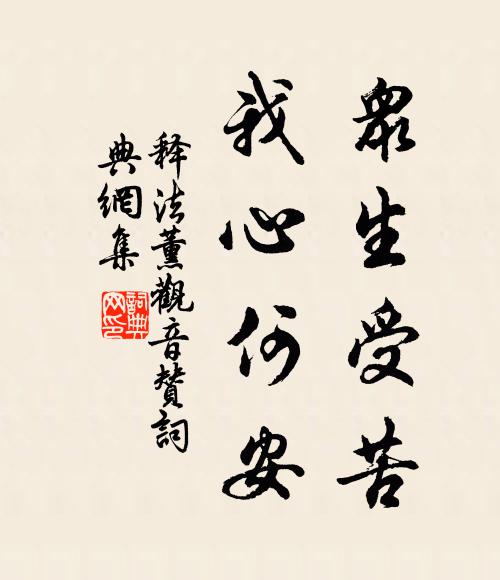 眾生受苦
我心何安
释法薰觀音贊詞
典網集
詞典網印